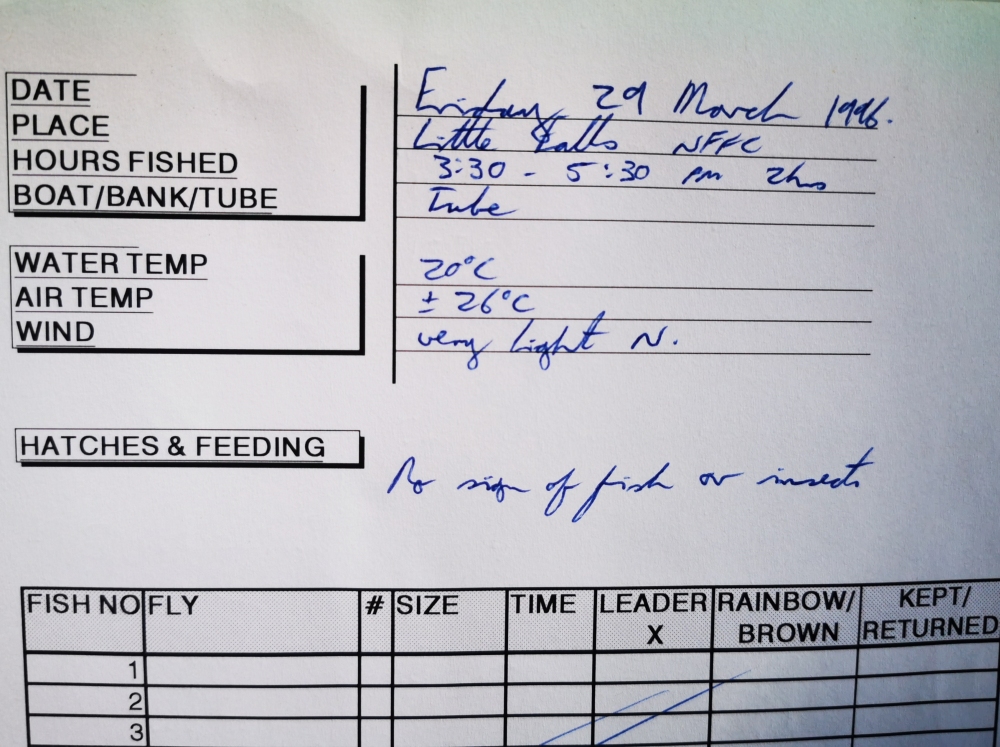 DATE Friday 29 March 1996.
PLACE Little Falls NFFC
HOURS FISHED 3:30 - 5:30 pm 2hrs
BOAT/BANK/TUBE Tube
WATER TEMP 20°C
AIR TEMP ± 26°C
WIND very light N.
HATCHES & FEEDING No sign of fish or insects
FISH NO FLY # SIZE TIME LEADER X RAINBOW/BROWN KEPT/RETURNED
1
2
3